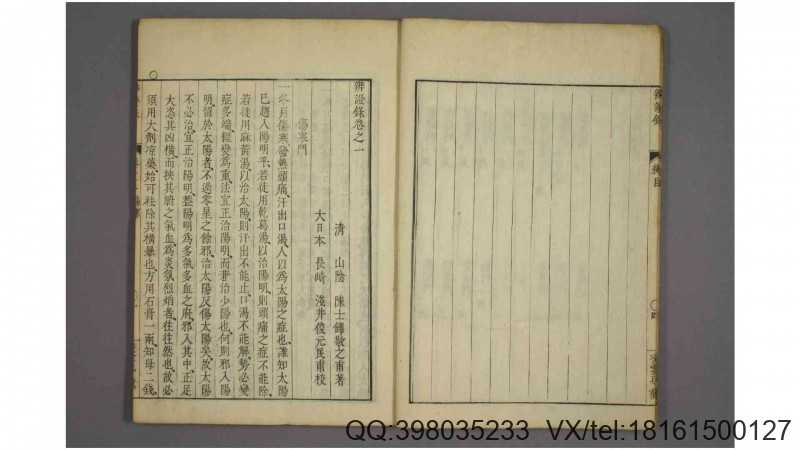 辨證錄卷之一
清 山陰 陳士鐸敬之甫著
大日本 長崎 淺井俊元民甫校
傷寒門
一冬月傷寒發熱頭痛汗出口渴人以為太陽之症也誰知太陽
已趨入陽明乎若徒用乾葛湯以治陽明則頭痛之症不能除
若徒用麻黃湯以治太陽則汗出不能止口渴不能解勢必變
症多端輕變為重法宜正治陽明而兼治少陽也何則邪入陽
明留於太陽者不過零星之餘邪治太陽反傷太陽矣故太陽
不必治宜正治陽明蓋陽明為多氣多血之府邪入其中正足
大恣其凶橫而挾其腑之氣血為炎氛烈焰者往往然也故必
須用大劑涼藥始可祛除其橫暴也方用石膏一兩知母二錢
辨證錄
總目
四
QQ:398035233 VX/tel:18161500127